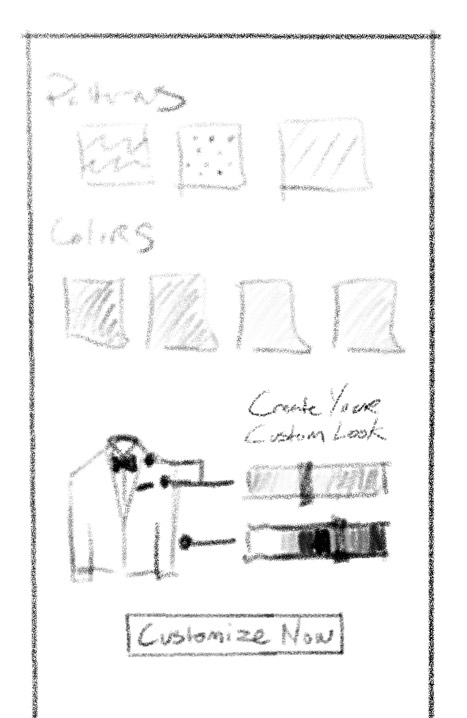 Patterns
Colors
Create Your
Custom Look
Customize Now